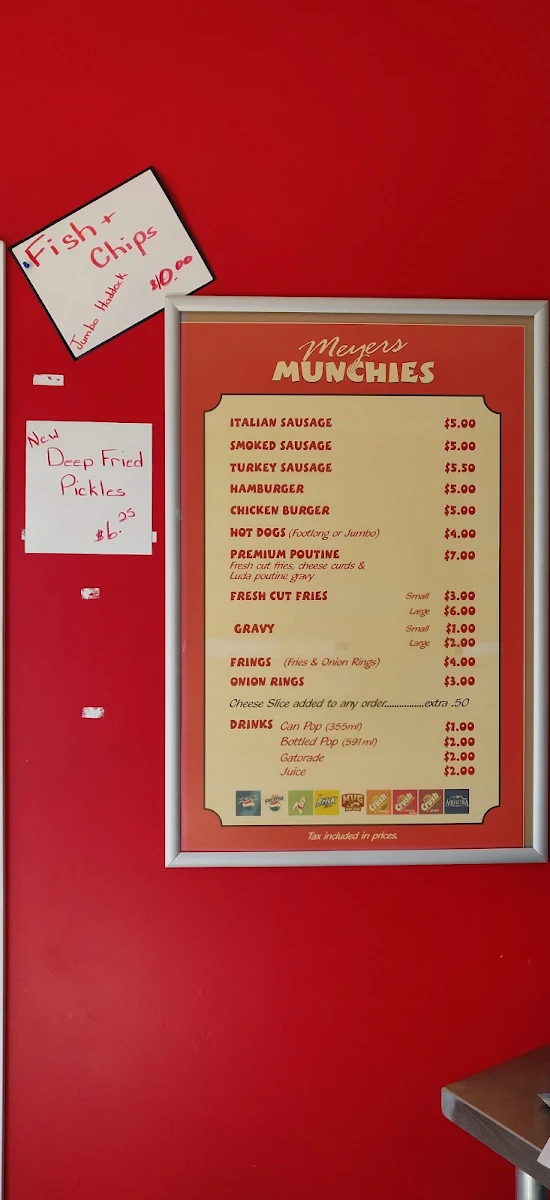 Fish +
Chips
Jumbo Haddock
$10.00
New
Deep Fried
Pickles
$6.25
Meyers
MUNCHIES
ITALIAN SAUSAGE $5.00
SMOKED SAUSAGE $5.00
TURKEY SAUSAGE $5.50
HAMBURGER $5.00
CHICKEN BURGER $5.00
HOT DOGS (Footlong or Jumbo) $4.00
PREMIUM POUTINE $7.00
Fresh cut fries, cheese curds &
Luda poutine gravy
FRESH CUT FRIES Small $3.00
Large $6.00
GRAVY Small $1.00
Large $2.00
FRINGS (Fries & Onion Rings) $4.00
ONION RINGS $3.00
Cheese Slice added to any order...............extra .50
DRINKS Can Pop (355ml) $1.00
Bottled Pop (591ml) $2.00
Gatorade $2.00
Juice $2.00
7up MUG Crush Crush Crush
Tax included in prices.